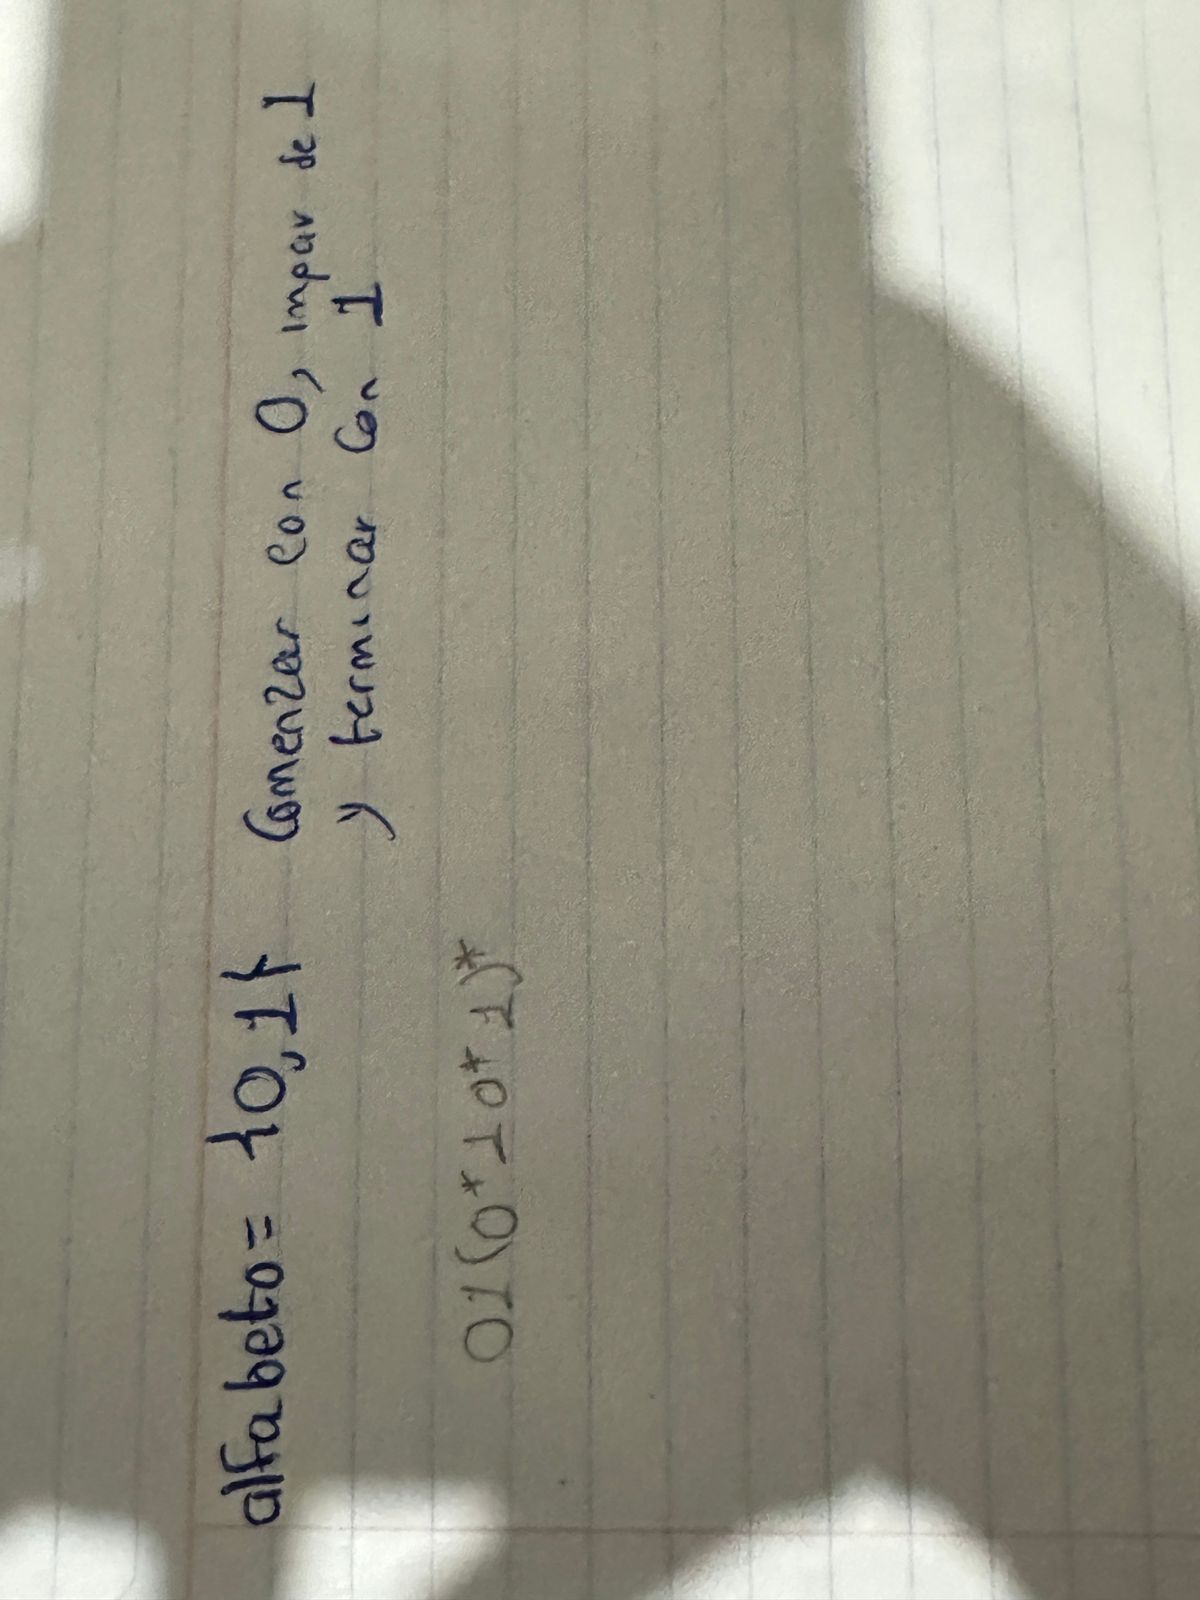 alfabeto= {0,1} Comenzar con 0, impar de 1
y terminar con 1
01(0*10*1)*